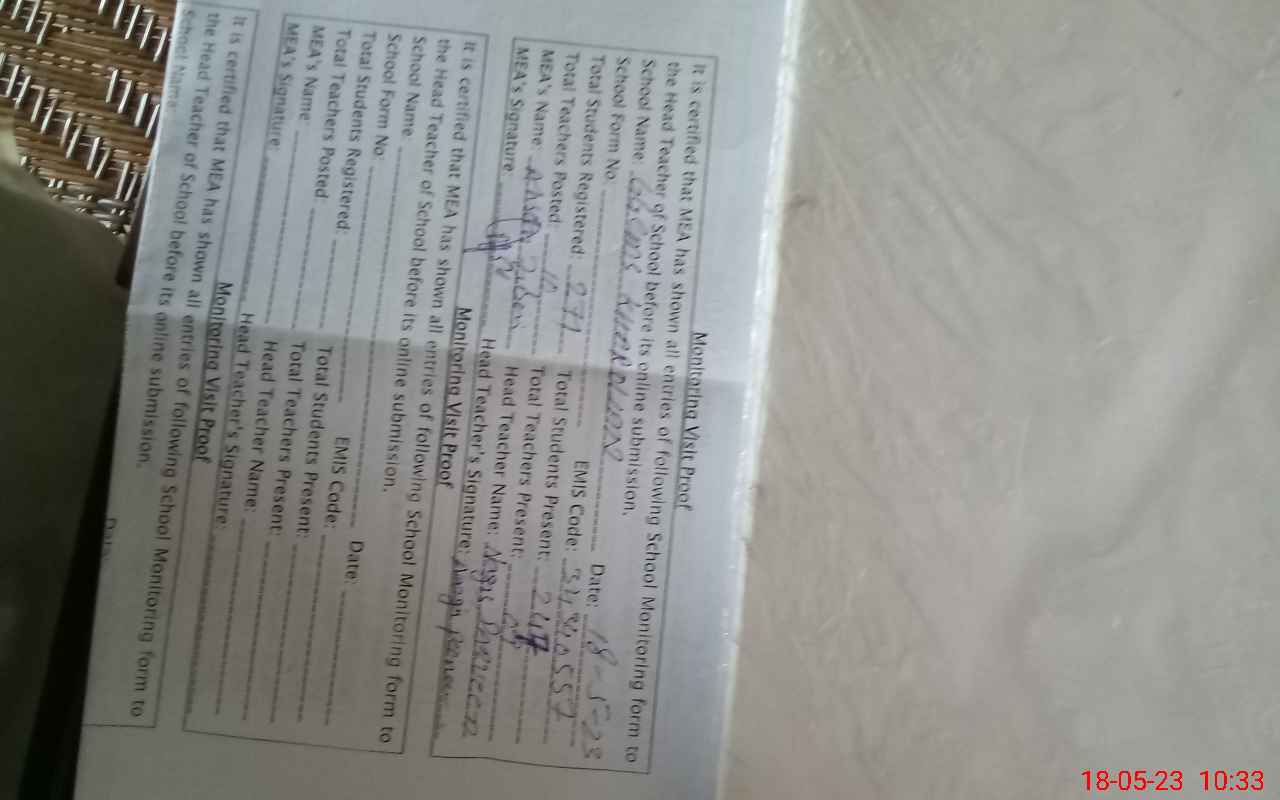 Monitoring Visit Proof
It is certified that MEA has shown all entries of following School Monitoring form to
the Head Teacher of School before its online submission.
School Name: Date: 18-5-23
School Form No. EMIS Code:
Total Students Registered: 271 Total Students Present:
Total Teachers Posted: Total Teachers Present:
MEA's Name: Head Teacher Name:
MEA's Signature: Head Teacher's Signature:
Monitoring Visit Proof
It is certified that MEA has shown all entries of following School Monitoring form to
the Head Teacher of School before its online submission.
School Name: Date:
School Form No: EMIS Code:
Total Students Registered: Total Students Present:
Total Teachers Posted: Total Teachers Present:
MEA's Name Head Teacher Name:
MEA's Signature: Head Teacher's Signature:
Monitoring Visit Proof
It is certified that MEA has shown all entries of following School Monitoring form to
the Head Teacher of School before its online submission.
School Name Date:
18-05-23 10:33